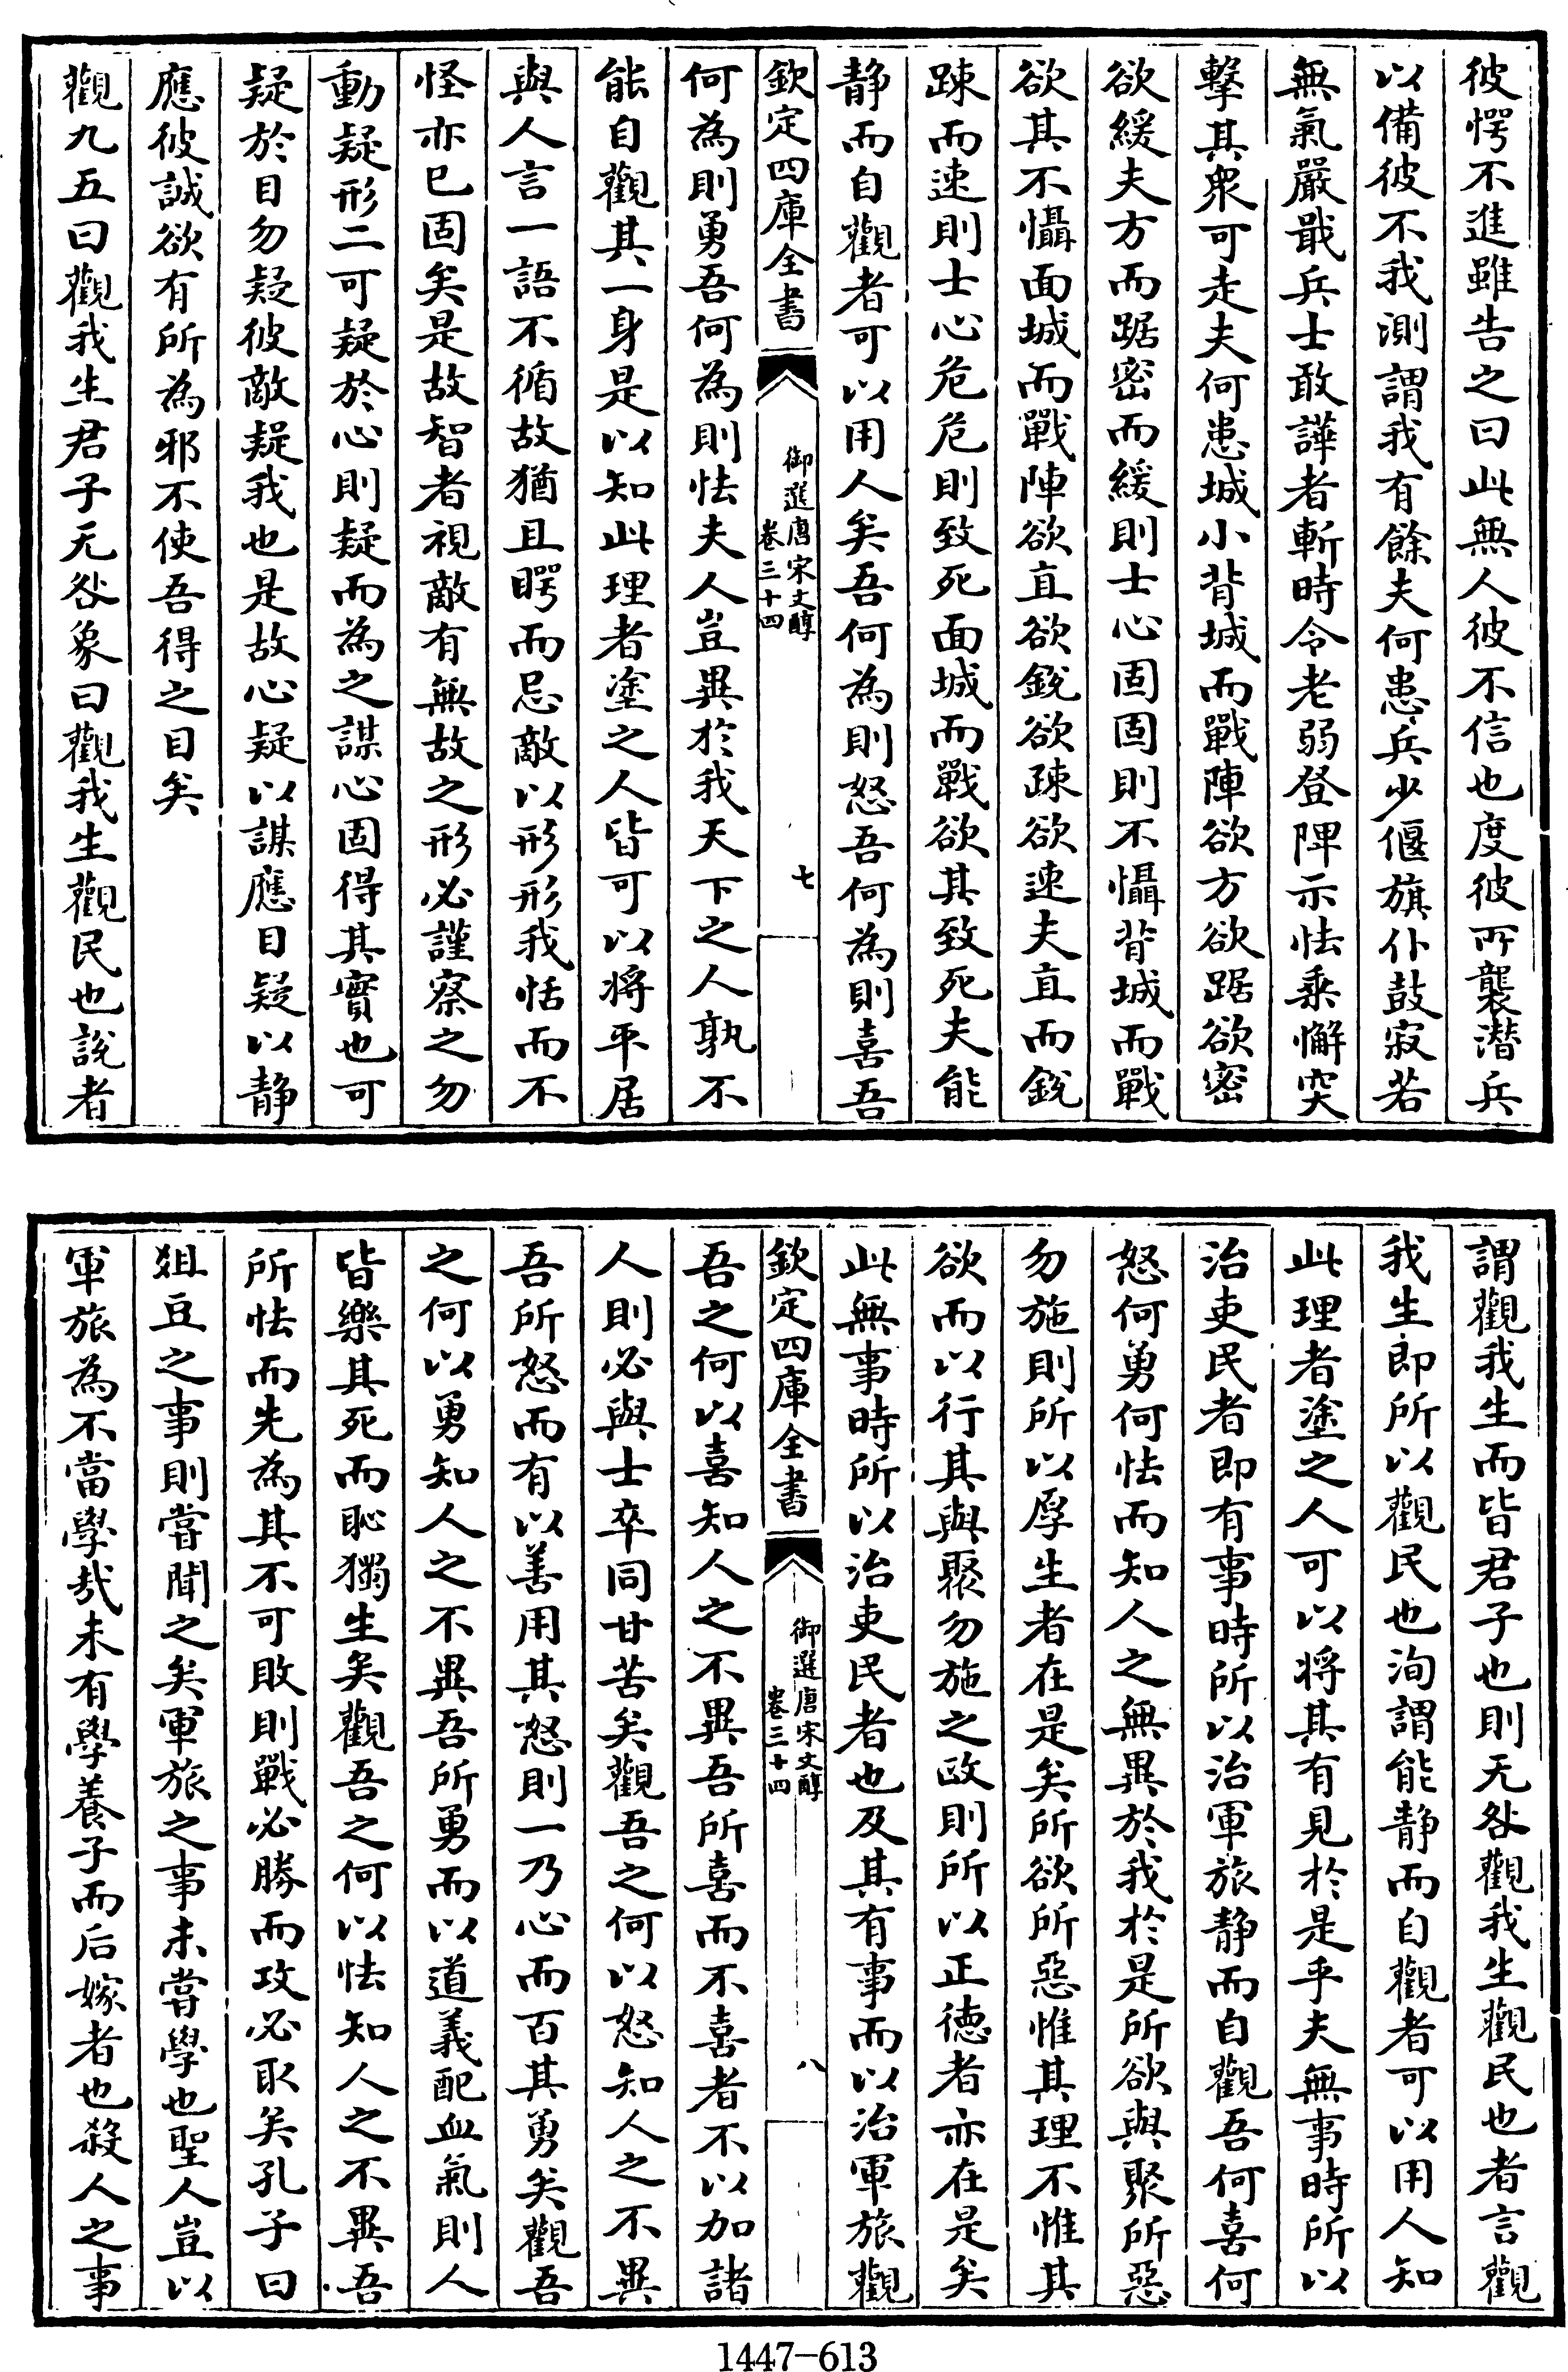 彼愕不進雖告之曰此無人彼不信也度彼所襲潛兵
以備彼不我測謂我有餘夫何患兵少偃旗仆鼓寂若
無氣嚴戢兵士敢譁者斬時令老弱登陴示怯乘懈突
擊其衆可走夫何患城小背城而戰陣欲方欲踞欲密
欲緩夫方而踞密而緩則士心固固則不懾背城而戰
欲其不懾面城而戰陣欲直欲銳欲疎欲速夫直而銳
踈而速則士心危危則致死面城而戰欲其致死夫能
靜而自觀者可以用人矣吾何為則怒吾何為則喜吾
欽定四庫全書
御選唐宋文醇
卷三十四
七
何為則勇吾何為則怯夫人豈異於我天下之人孰不
能自觀其一身是以知此理者塗之人皆可以將平居
與人言一語不循故猶且愕而忌敵以形形我恬而不
怪亦已固矣是故智者視敵有無故之形必謹察之勿
動疑形二可疑於心則疑而為之謀心固得其實也可
疑於目勿疑彼敵疑我也是故心疑以謀應目疑以靜
應彼誠欲有所為邪不使吾得之目矣
觀九五曰觀我生君子无咎象曰觀我生觀民也說者
謂觀我生而皆君子也則无咎觀我生觀民也者言觀
我生即所以觀民也洵謂能靜而自觀者可以用人知
此理者塗之人可以將其有見於是乎夫無事時所以
治吏民者即有事時所以治軍旅靜而自觀吾何喜何
怒何勇何怯而知人之無異於我於是所欲與聚所惡
勿施則所以厚生者在是矣所欲所惡惟其理不惟其
欲而以行其與聚勿施之政則所以正德者亦在是矣
此無事時所以治吏民者也及其有事而以治軍旅觀
欽定四庫全書
御選唐宋文醇
卷三十四
八
吾之何以喜知人之不異吾所喜而不喜者不以加諸
人則必與士卒同甘苦矣觀吾之何以怒知人之不異
吾所怒而有以善用其怒則一乃心而百其勇矣觀吾
之何以勇知人之不異吾所勇而以道義配血氣則人
皆樂其死而恥獨生矣觀吾之何以怯知人之不異吾
所怯而先為其不可敗則戰必勝而攻必取矣孔子曰
俎豆之事則嘗聞之矣軍旅之事未嘗學也聖人豈以
軍旅為不當學哉未有學養子而后嫁者也殺人之事
1447-613